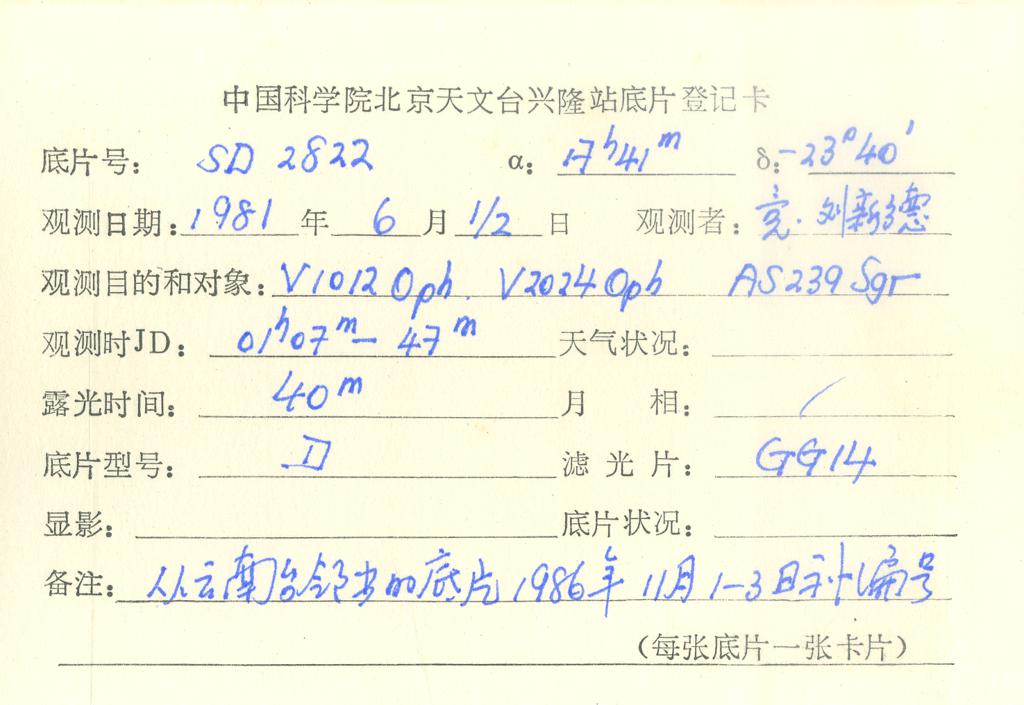 中国科学院北京天文台兴隆站底片登记卡
底片号: SD 2822 α: 17ʰ41ᵐ δ: -23°40′
观测日期: 1981 年 6 月 1/2 日 观测者: 亮·刘新德
观测目的和对象: V1012 Oph. V2024 Oph AS239 Sgr
观测时JD: 01ʰ07ᵐ— 47ᵐ 天气状况:
露光时间: 40ᵐ 月 相: /
底片型号: D 滤光片: GG14
显影: 底片状况:
备注: 从云南台的底片 1986年 11月 1-3日补编号
(每张底片一张卡片)